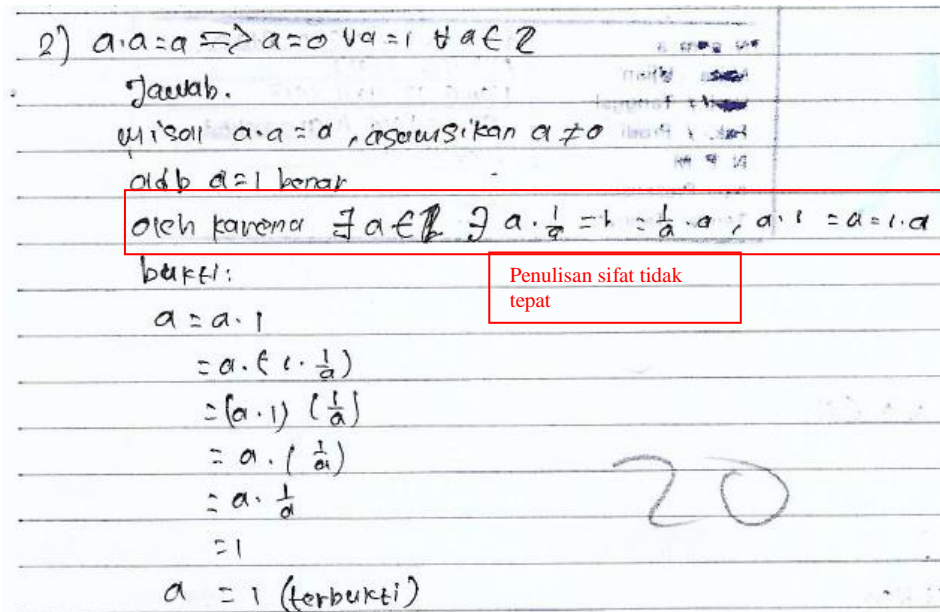 2) a·a=a ⇒ a=0 ∨ a=1 ∀ a∈ℤ
Jawab.
misal a·a=a, asumsikan a≠0
adb a=1 benar
oleh karena ∃ a∈ℝ ∋ a·1/a=1=1/a·a, a·1=a=1·a
Penulisan sifat tidak
tepat
bukti:
a = a·1
= a·(1·1/a)
= (a·1) (1/a)
= a·(1/a)
= a·1/a
= 1
20
a = 1 (terbukti)